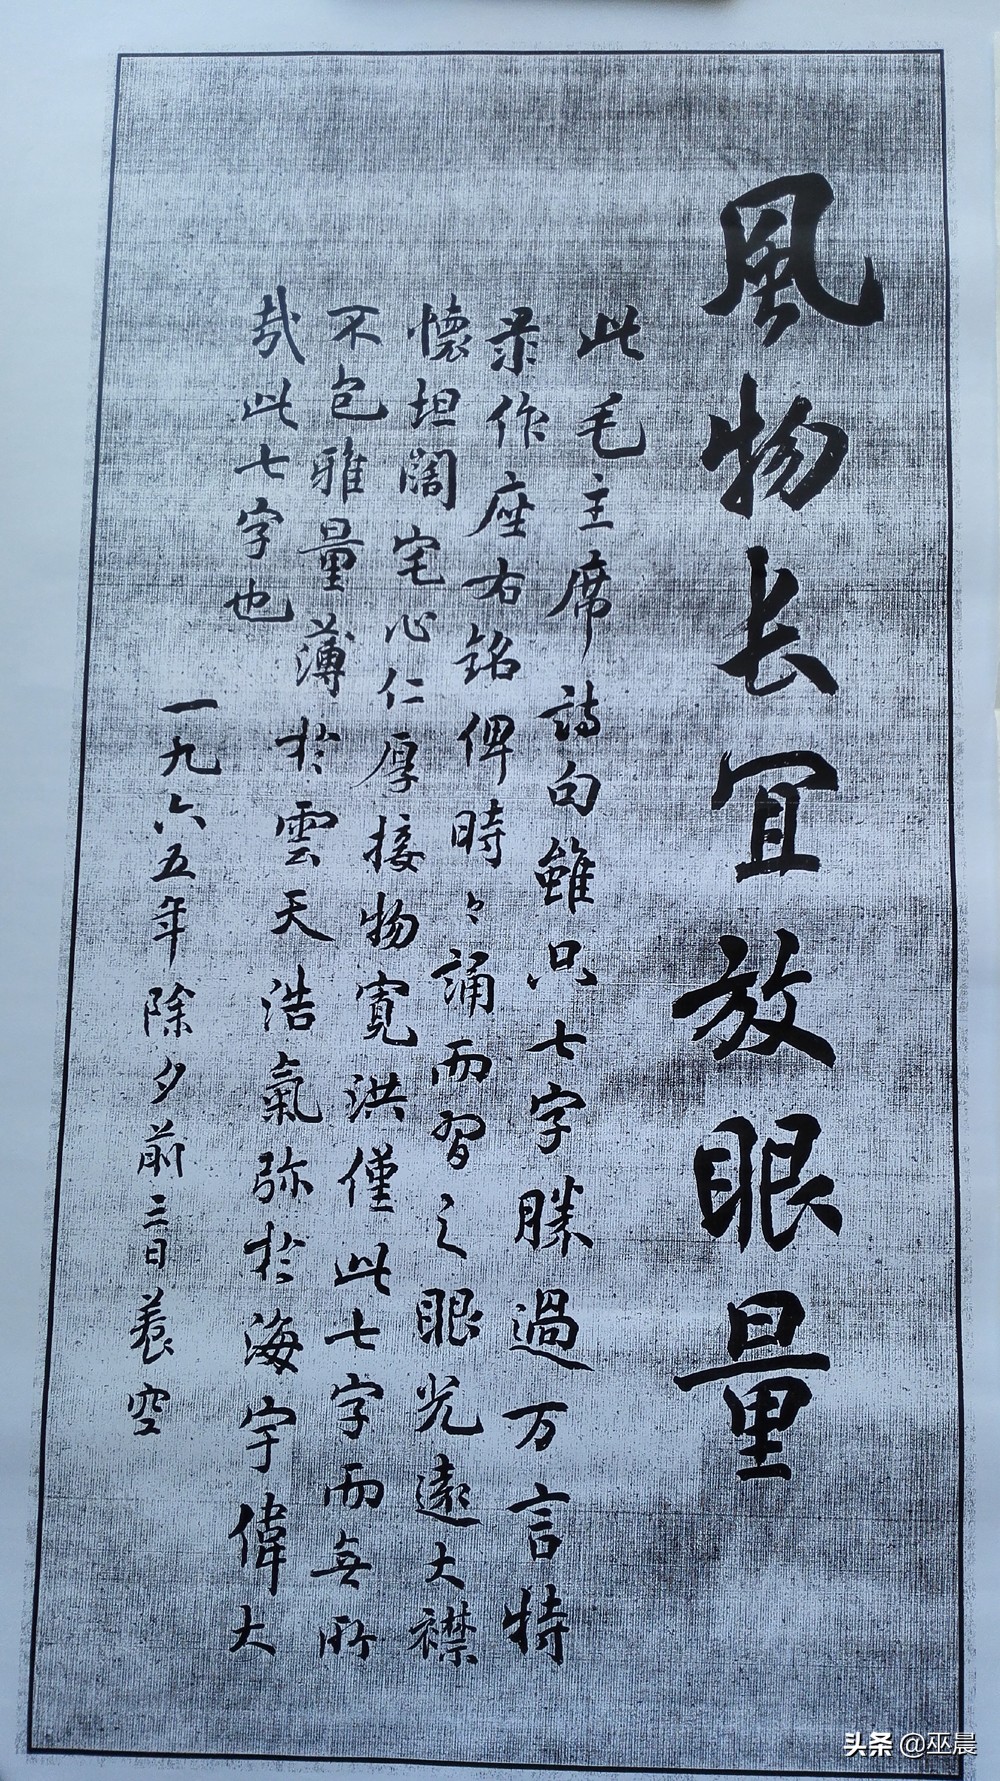 風物长宜放眼量
此毛主席詩句雖只七字勝過万言特
录作座右銘俾時々誦而習之眼光遠大襟
懷坦闊宅心仁厚接物寬洪僅此七字而無所
不包雅量薄於雲天浩氣弥於海宇偉大
哉此七字也
一九六五年除夕前三日养空
头条 @巫晨